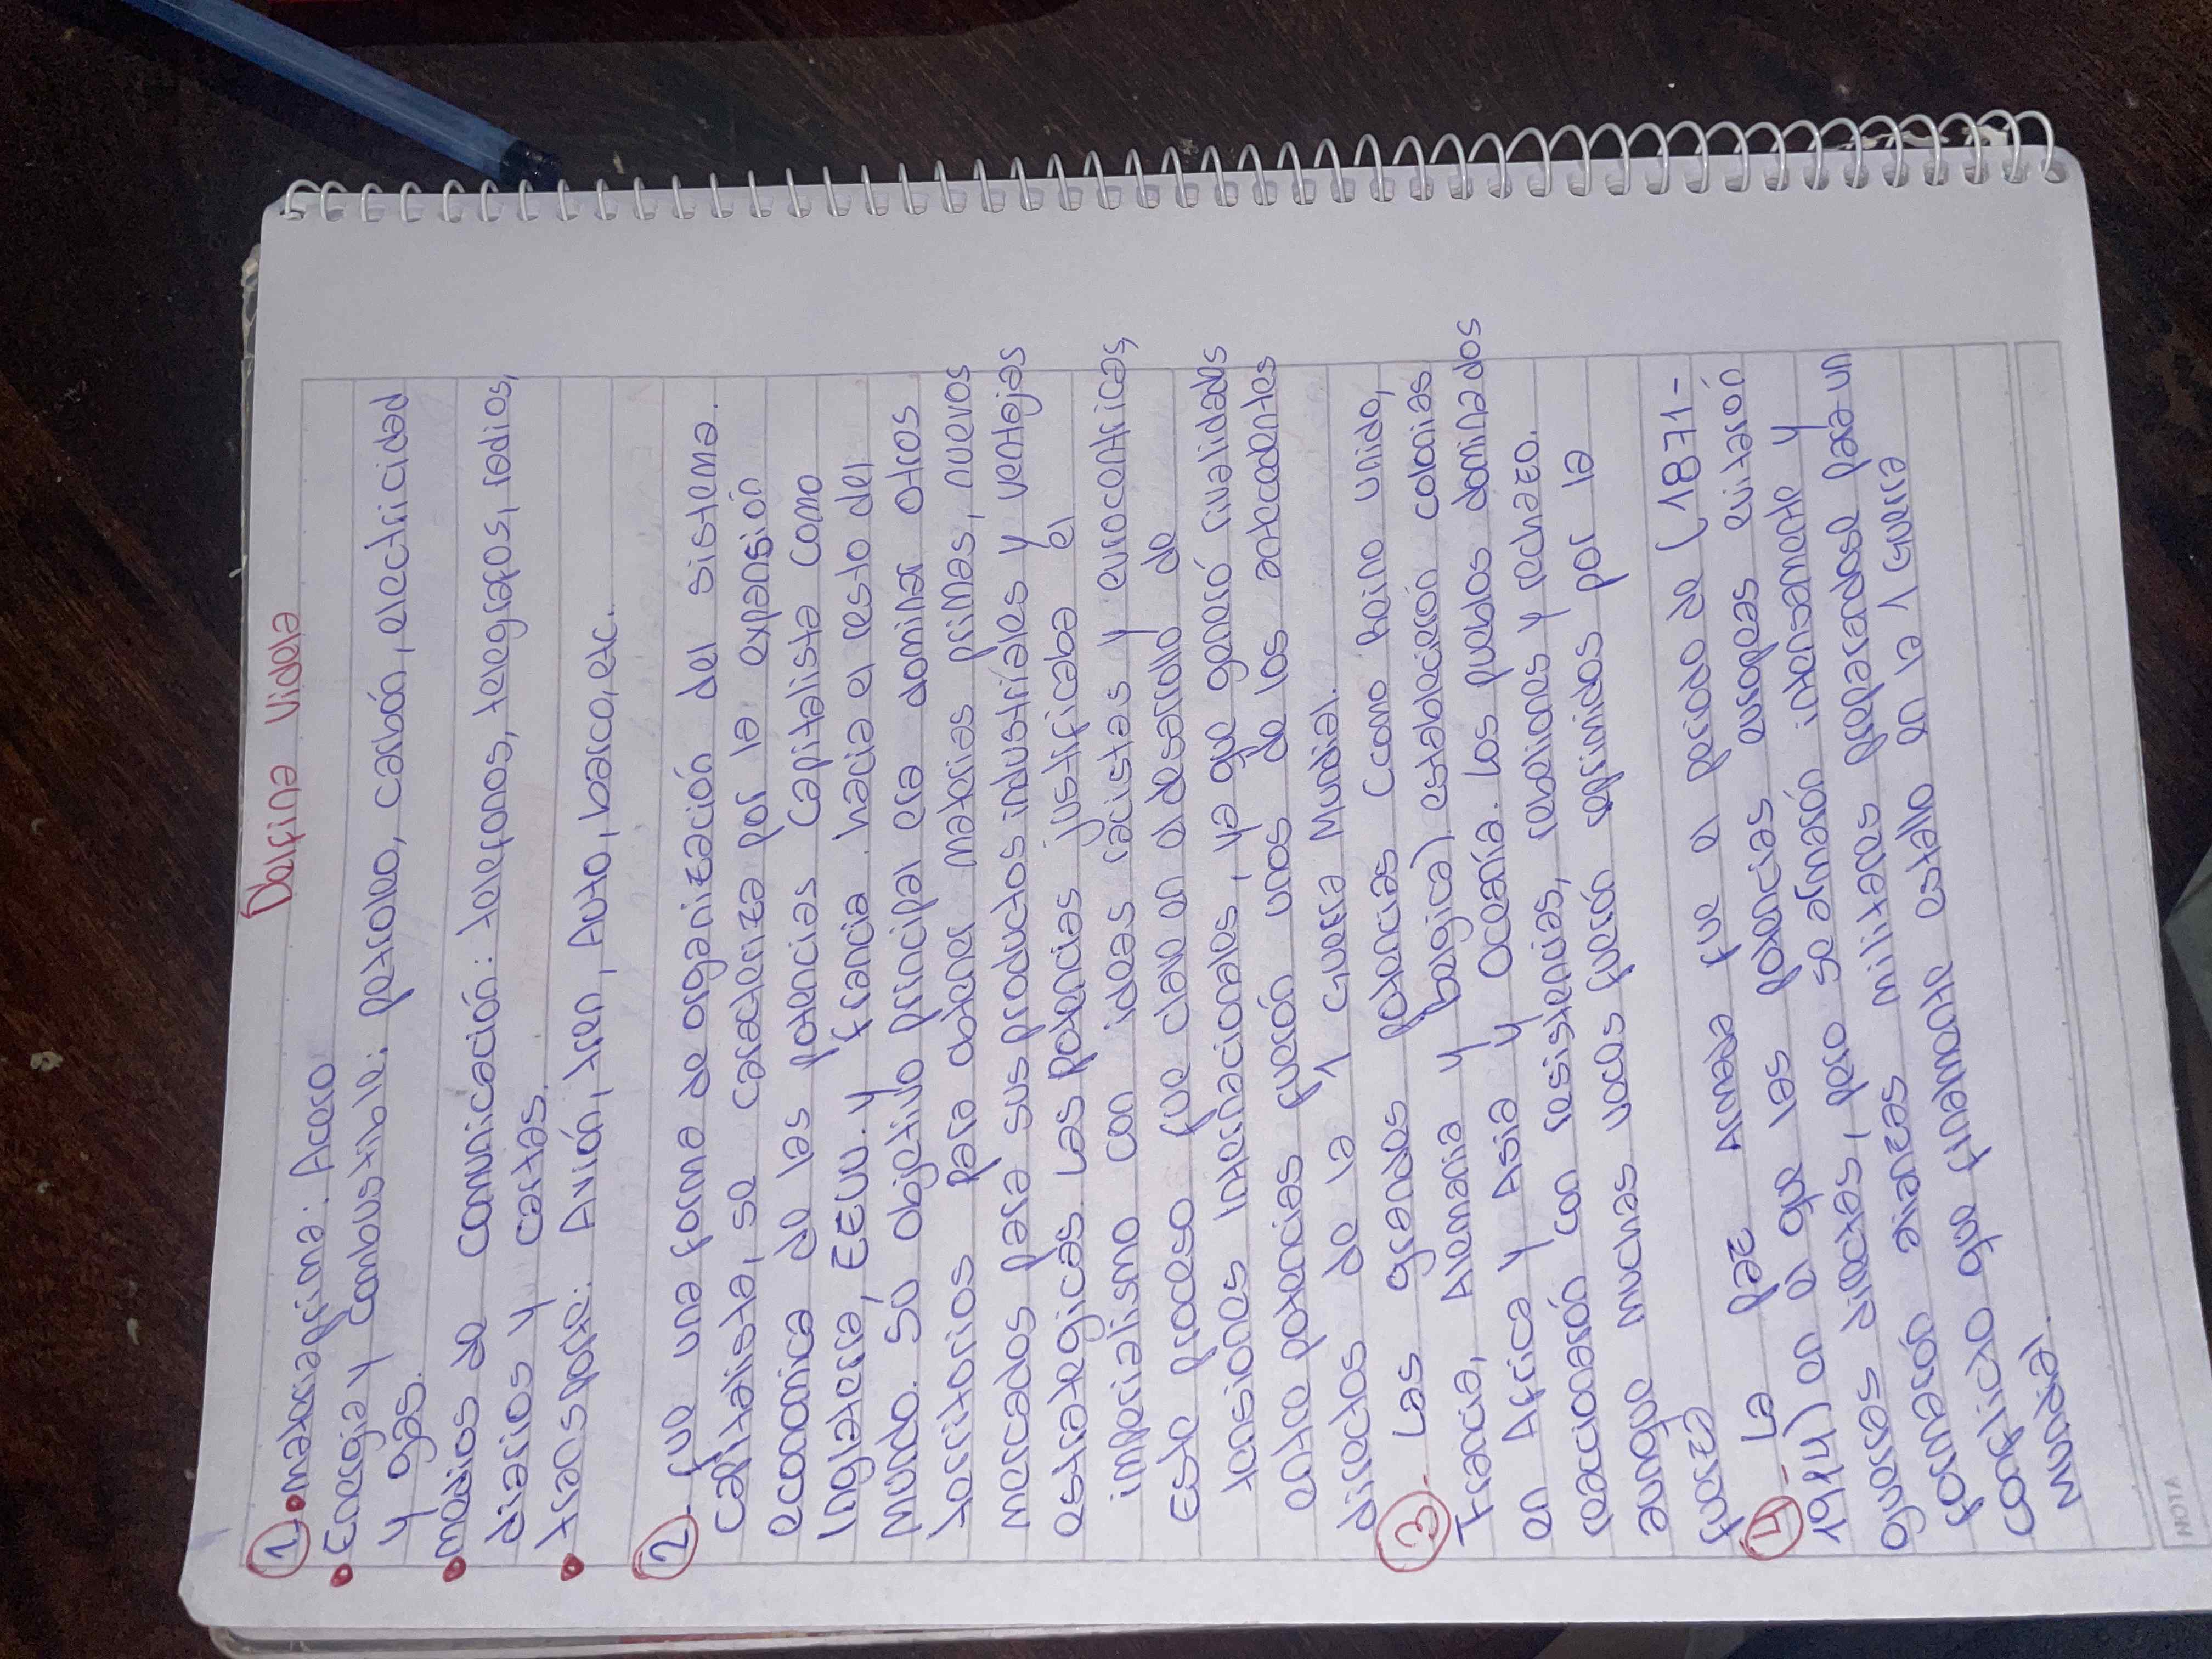 Delfina Videla
1 • materia prima: Acero
• Energia y combustible: petroleo, carbón, electricidad
y gas.
• medios de comunicación: telefonos, telegrafos, radios,
diarios y cartas.
• transporte: Avión, tren, Auto, barco, etc.
2- fue una forma de organización del sistema
capitalista, se caracteriza por la expansión
economica de las potencias capitalista como
Inglaterra, EEUU. y francia hacia el resto del
mundo. su objetivo principal era dominar otros
territorios para obtener materias primas, nuevos
mercados para sus productos industriales y ventajas
estrategicas. Las potencias justificaba el
imperialismo con ideas racistas y eurocentricas
Este proceso fue clave en el desarrollo de
tensiones internacionales, ya que generó rivalidades
entre potencias fuerón unos de los antecedentes
directos de la 1 Guerra Mundial.
3- Las grandes potencias (como Reino unido,
Francia, Alemania y Belgica) establecierón colonias
en Africa y Asia y Oceanía. los pueblos dominados
reaccionarón con resistencias, rebeliones y rechezo.
aunque muchas veces fuerón reprimidos por la
fuerza
4- La paz Armada fue el periodo de (1871-
1914) en el que las potencias europeas evitarón
guerras directas, pero se armarón intensamente y
formarón alianzas militares preparandose para un
conflicto que finalmente estallo en la 1 Guerra
mundial.